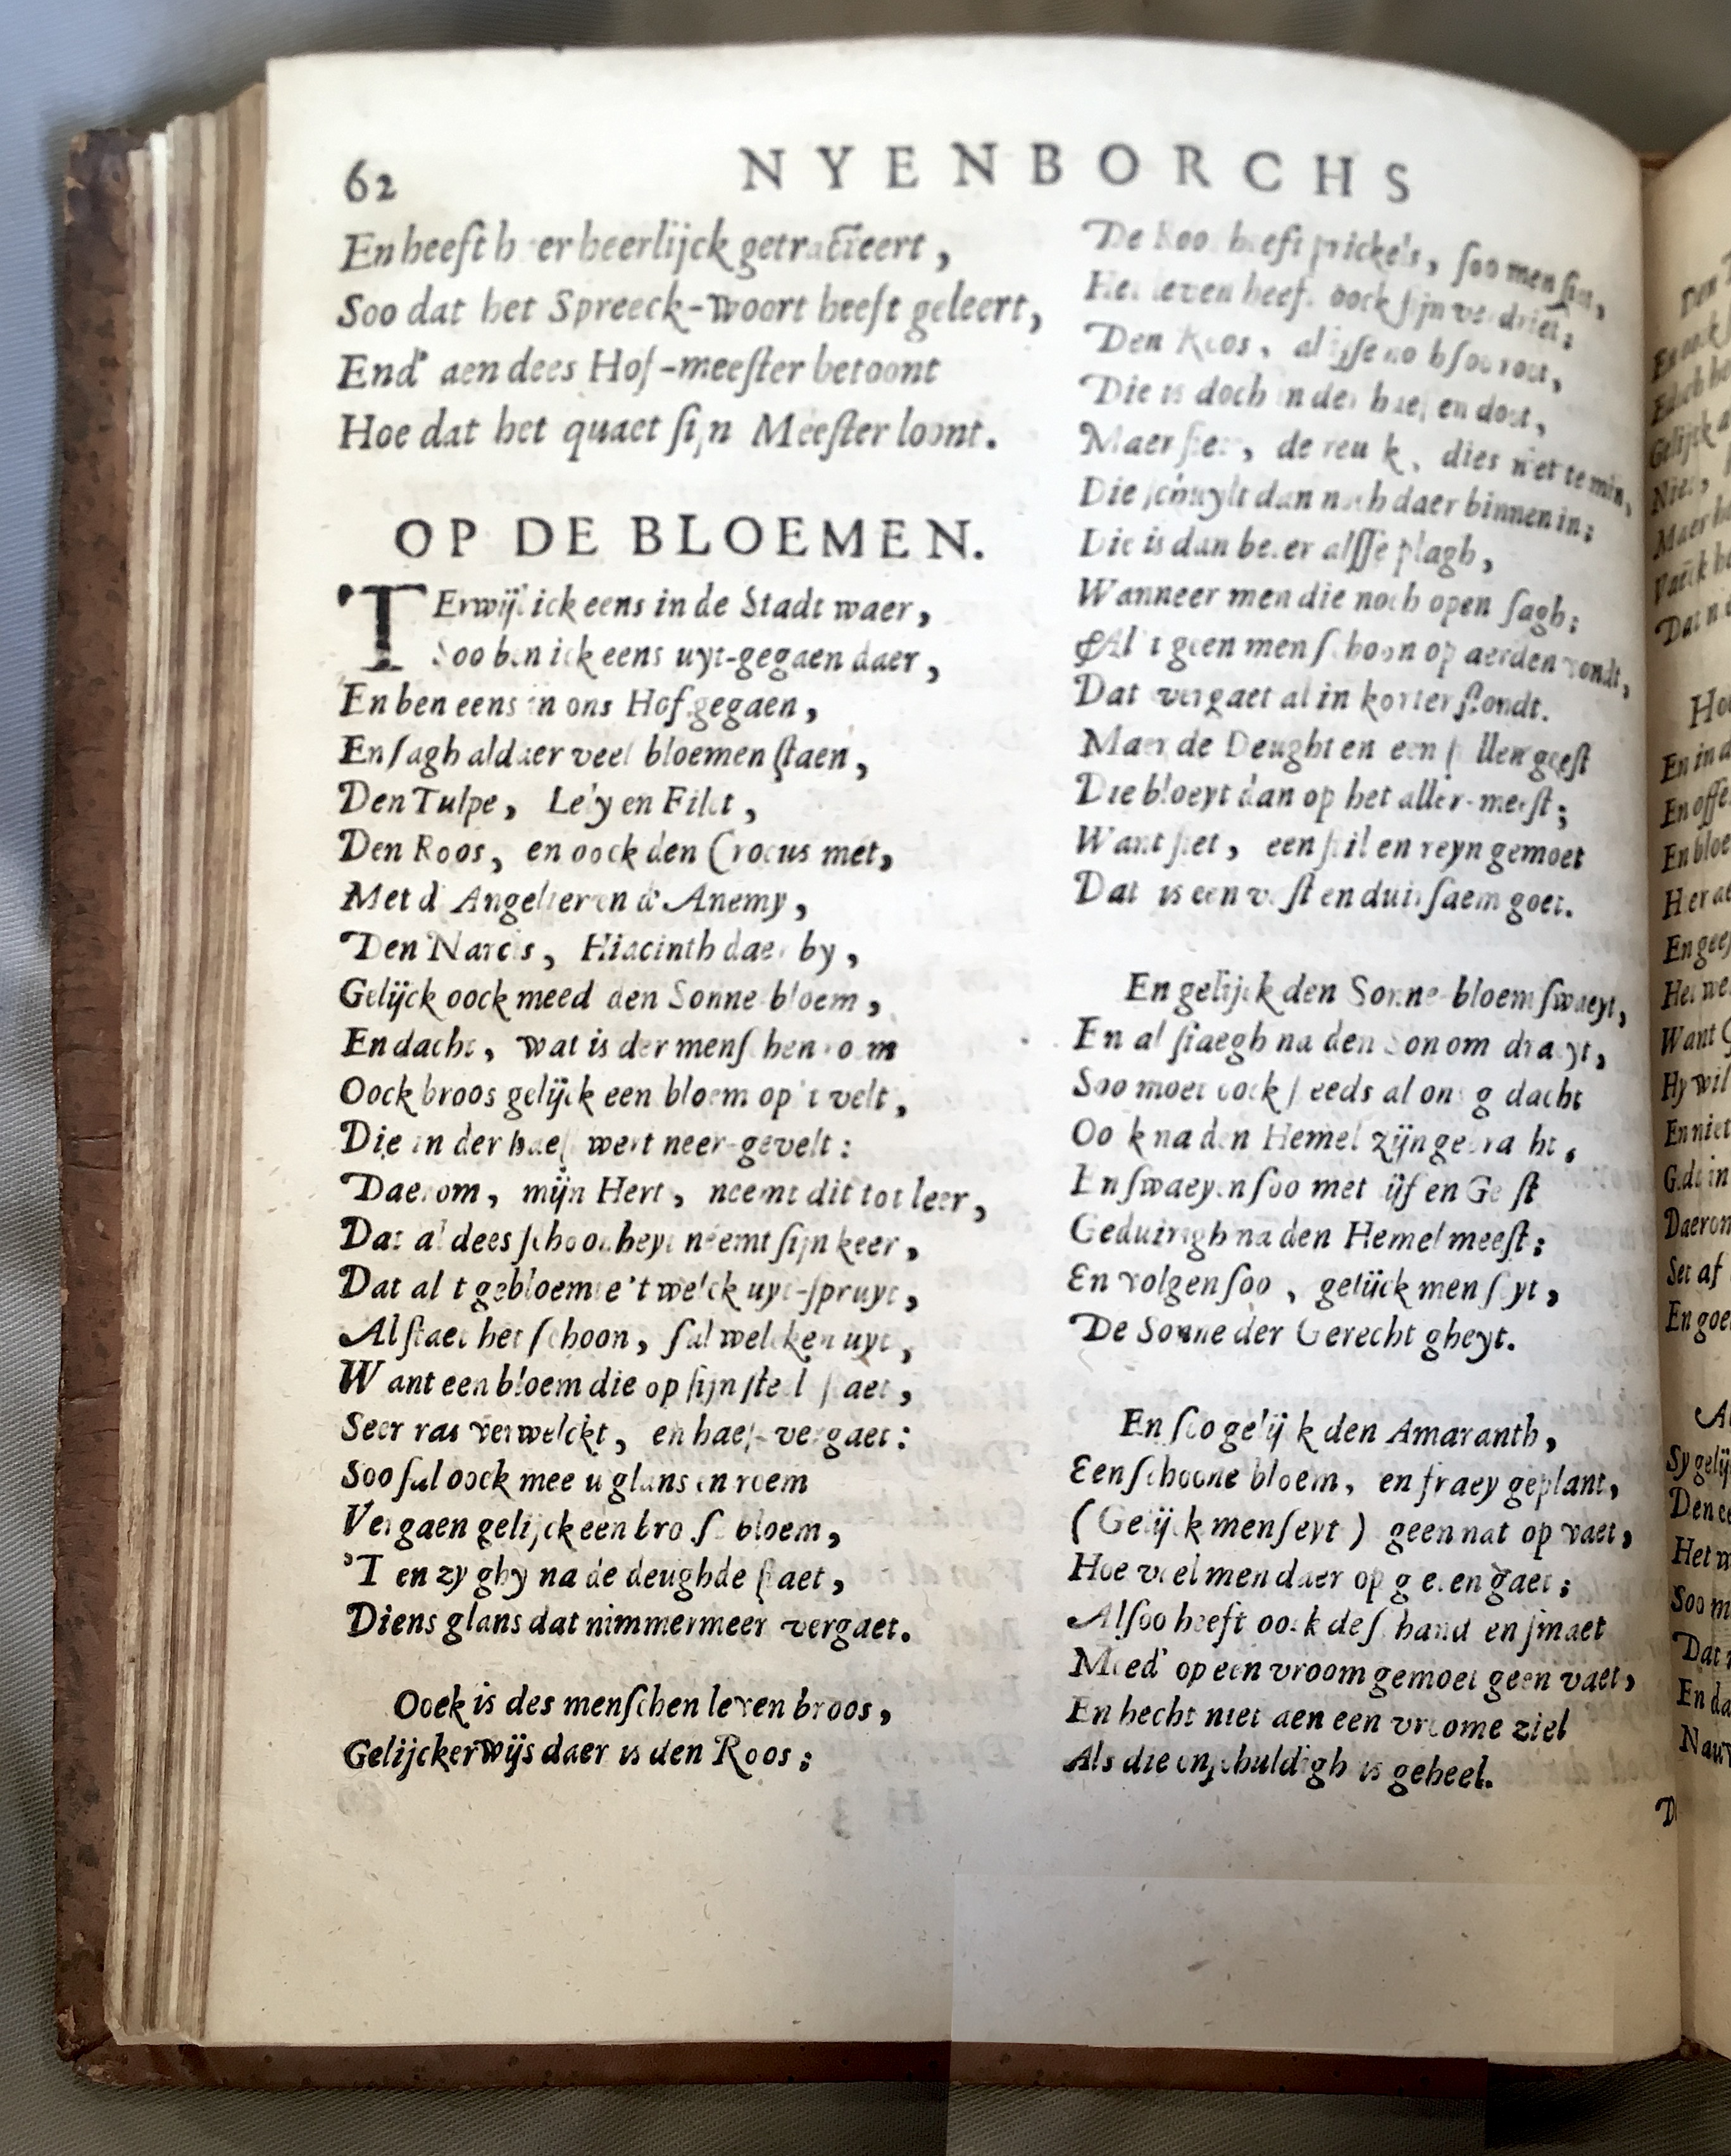 62 NYENBORCHS
En heeft h er heerlijck getracteert,
Soo dat het Spreeck-woort heeft geleert,
End' aen dees Hof-meeſter betoont
Hoe dat het quaet ſijn Meeſter loont.
OP DE BLOEMEN.
TErwijl ick eens in de Stadt waer,
Soo ben ick eens uyt-gegaen daer,
En ben eens in ons Hof gegaen,
En ſagh aldaer veel bloemen ſtaen,
Den Tulpe, Lely en Filet,
Den Roos, en oock den Crocus met,
Met d' Angelier en d' Anemy,
Den Narcis, Hiacinth daer by,
Gelijck oock meed den Sonne-bloem,
En dacht, wat is der menſchen rom
Oock broos gelijck een bloem op 't velt,
Die in der haeſt wert neer-gevelt:
Daerom, mijn Hert, neemt dit tot leer,
Dat al dees ſchoonheyt neemt ſijn keer,
Dat al 't gebloemte 't welck uyt-ſpruyt,
Al ſtaet het ſchoon, ſal welcken uyt,
Want een bloem die op ſijn ſteel ſtaet,
Seer ras verwelckt, en haeſt-vergaet:
Soo ſal oock mee u glans en roem
Vergaen gelijck een broſe bloem,
'T en zy ghy na de deughde ſtaet,
Diens glans dat nimmermeer vergaet.
Oock is des menſchen leven broos,
Gelijckerwijs daer is den Roos;
De Roos heeft prickels, ſoo men ſiet,
Het leven heeft oock ſijn verdriet;
Den Roos, al iſſe noch ſoo root,
Die is doch in der haeſt en doot,
Maer ſiet, de reuck, dies niet te min,
Die ſchuylt dan noch daer binnen in;
Die is dan beter alſſe plagh,
Wanneer men die noch open ſagh;
Al 't geen men ſchoon op aerden vondt,
Dat vergaet al in korter ſtondt.
Maer de Deught en een ſtillen geeſt
Die bloeyt dan op het aller-meeſt;
Want ſiet, een ſtil en reyn gemoet
Dat is een vaſt en duirſaem goet.
En gelijck den Sonne-bloem ſwaeyt,
En al ſtaegh na den Son om draeyt,
Soo moet oock ſteeds al ons gedacht
Oock na den Hemel zijn gebracht,
En ſwaeyen ſoo met lijf en Geeſt
Geduirigh na den Hemel meeſt;
En volgen ſoo, gelijck men ſeyt,
De Sonne der Gerechtigheyt.
En ſoo gelijck den Amaranth,
Een ſchoone bloem, en fraey geplant,
(Gelijck men ſeyt) geen nat op vaet,
Hoe veel men daer op gieten gaet;
Alſoo heeft oock de ſchand en ſmaet
Meed' op een vroom gemoet geen vaet,
En hecht niet aen een vroome ziel
Als die onſchuldigh is geheel.